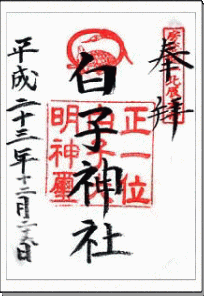 奉拝
白子神社
正一位
明神璽
平成二十三年十二月二六日